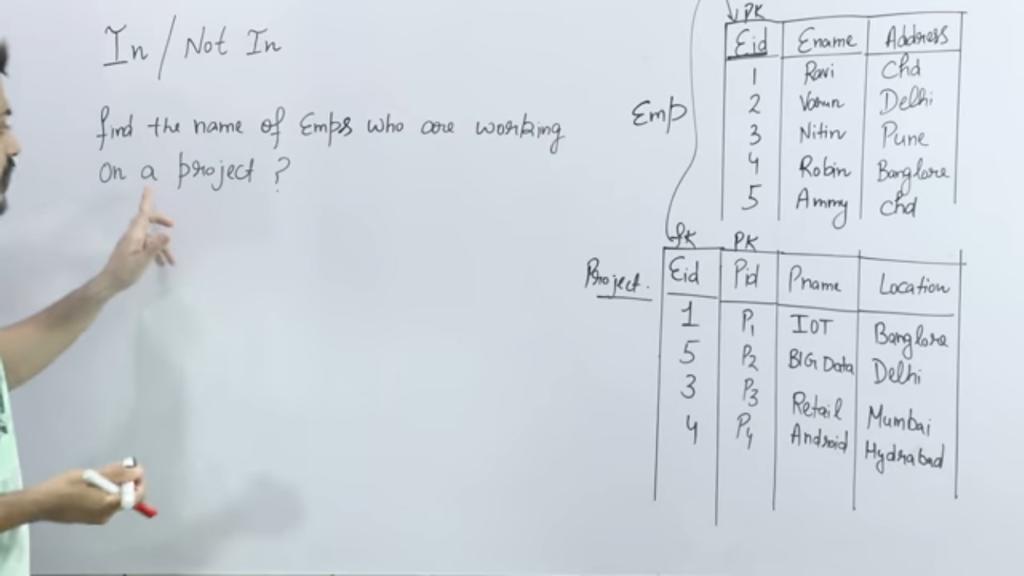 In / Not In
find the name of Emps who are working
on a project ?
Emp
PK
Eid Ename Address
1 Ravi Chd
2 Varun Delhi
3 Nitin Pune
4 Robin Banglore
5 Ammy Chd
Project.
fk PK
Eid Pid Pname Location
1 P1 IOT Banglore
5 P2 BIG Data Delhi
3 P3 Retail Mumbai
4 P4 Android Hydrabad